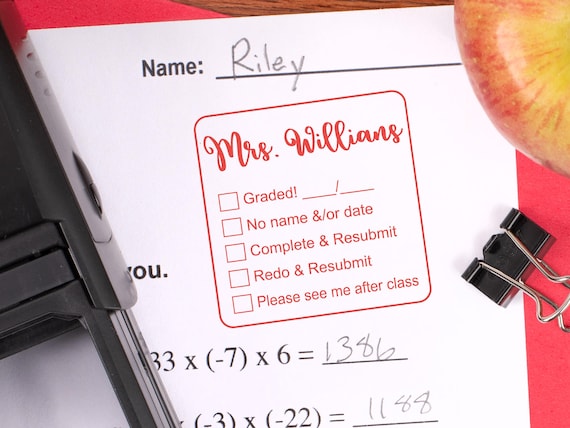 Name: Riley
Mrs. Willians
Graded! ____/____
No name &/or date
Complete & Resubmit
Redo & Resubmit
Please see me after class
you.
33 x (-7) x 6 = 1386
x (-3) x (-22) = 1188